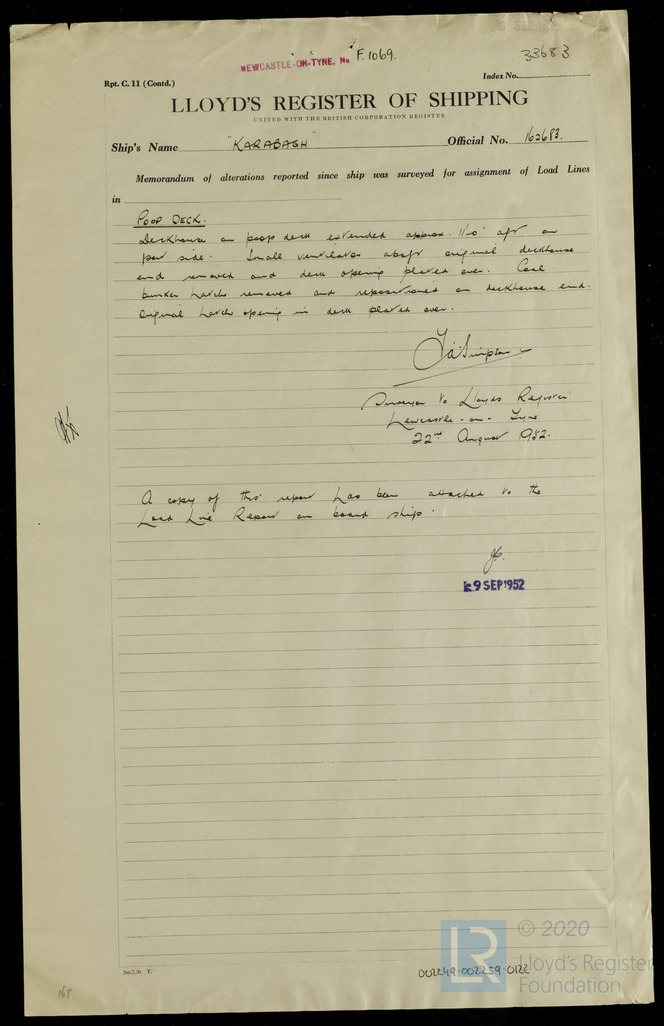 6 SEP
NEWCASTLE-ON-TYNE, No F.1069.
33683
Rpt. C. 11 (Contd.)
Index No.
LLOYD'S REGISTER OF SHIPPING
UNITED WITH THE BRITISH CORPORATION REGISTER
Ship's Name "KARABAGH" Official No. 162683.
Memorandum of alterations reported since ship was surveyed for assignment of Load Lines
in
POOP DECK.
Deckhouse on poop deck extended approx. 11'-0" aft on
port side. Small ventilator abaft original deckhouse
end removed and deck opening plated over. Coal
bunker hatch removed and repositioned on deckhouse end.
Original hatch opening in deck plated over.
Simpson
Surveyor to Lloyds Register
Newcastle-on-Tyne
22nd August 1952.
A copy of this report has been attached to the
Load Line Report on board ship.
9 SEP 1952
002249-002259-0122
168
© 2020
LR
Lloyd's Register
Foundation